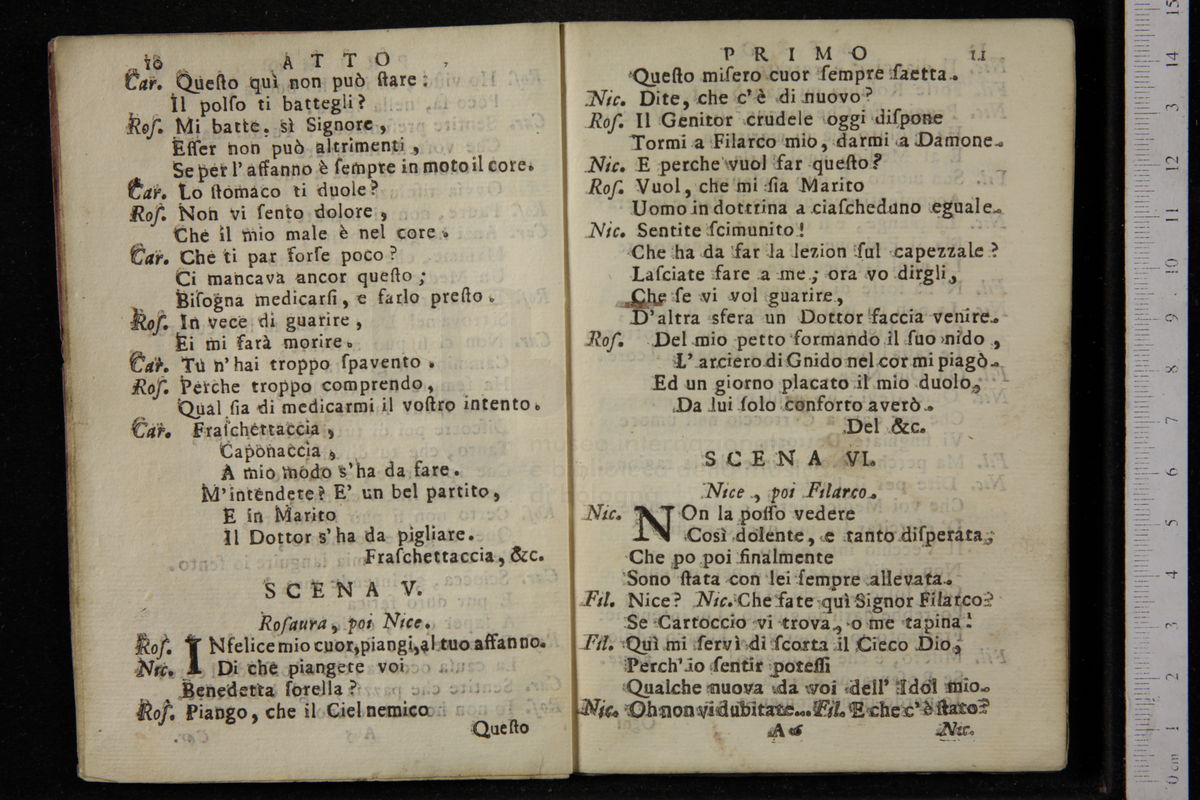 10 ATTO
Car. Queſto quì non può ſtare:
Il polſo ti battegli?
Roſ. Mi batte. sì Signore,
Eſſer non può altrimenti,
Se per l'affanno è ſempre in moto il core.
Car. Lo ſtomaco ti duole?
Roſ. Non vi ſento dolore,
Che il mio male è nel core.
Car. Che ti par forſe poco?
Ci mancava ancor queſto;
Biſogna medicarſi, e farlo preſto.
Roſ. In vece di guarire,
Ei mi farà morire.
Car. Tu n'hai troppo ſpavento.
Roſ. Perche troppo comprendo,
Qual ſia di medicarmi il voſtro intento.
Car. Fraſchettaccia,
Caponaccia,
A mio modo s'ha da fare.
M'intendete? E' un bel partito,
E in Marito
Il Dottor s'ha da pigliare.
Fraſchettaccia, &c.
SCENA V.
Roſaura, poi Nice.
Roſ. INfelice mio cuor, piangi, al tuo affanno.
Nic. Di che piangete voi
Benedetta ſorella?
Roſ. Piango, che il Ciel nemico
Queſto
PRIMO 11
Queſto miſero cuor ſempre ſaetta.
Nic. Dite, che c'è di nuovo?
Roſ. Il Genitor crudele oggi diſpone
Tormi a Filarco mio, darmi a Damone.
Nic. E perche vuol far queſto?
Roſ. Vuol, che mi ſia Marito
Uomo in dottrina a ciaſcheduno eguale.
Nic. Sentite ſcimunito!
Che ha da far la lezion ſul capezzale?
Laſciate fare a me; ora vo dirgli,
Che ſe vi vol guarire,
D'altra sfera un Dottor faccia venire.
Roſ. Del mio petto formando il ſuo nido,
L'arciero di Gnido nel cor mi piagò.
Ed un giorno placato il mio duolo,
Da lui ſolo conforto averò.
Del &c.
SCENA VI.
Nice, poi Filarco.
Nic. NOn la poſſo vedere
Così dolente, e tanto diſperata;
Che po poi finalmente
Sono ſtata con lei ſempre allevata.
Fil. Nice? Nic. Che fate quì Signor Filarco?
Se Cartoccio vi trova, o me tapina!
Fil. Quì mi ſervì di ſcorta il Cieco Dio,
Perch' io ſentir poteſſi
Qualche nuova da voi dell' Idol mio.
Nic. Oh non vi dubitate... Fil. E che c'è ſtato?
A 6 Nic.
0 cm 1 2 3 4 5 6 7 8 9 10 11 12 13 14 15